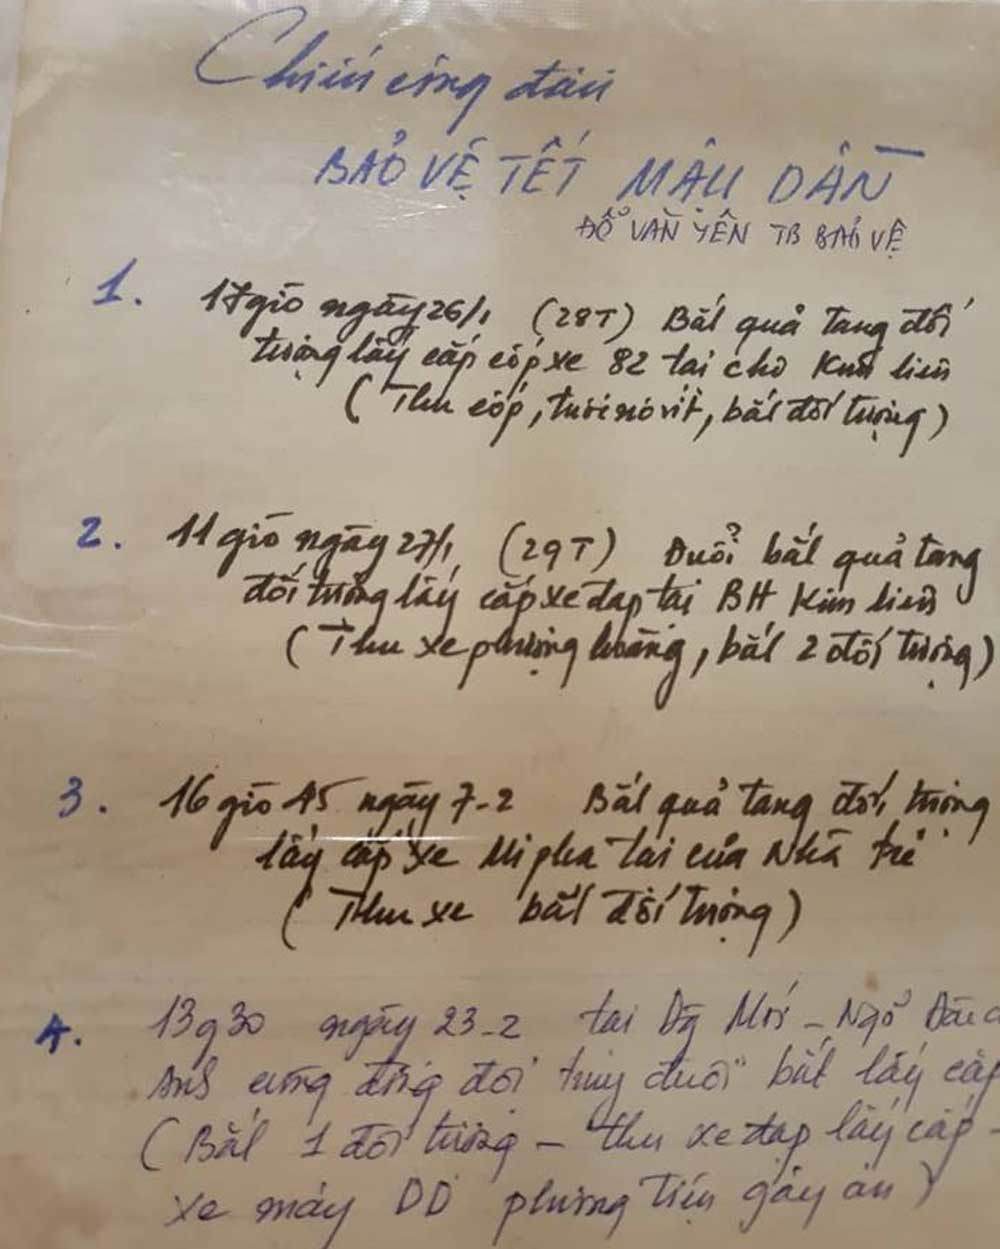 Chiến công đầu
BẢO VỆ TẾT MẬU DẦN
ĐỖ VĂN YÊN TB BẢO VỆ
1. 17 giờ ngày 26/1 (28T) Bắt quả tang đối
tượng lấy cắp cốp xe 82 tại chợ Kim liên
(Thu cốp, tuốc nơ vít, bắt đối tượng)
2. 11 giờ ngày 27/1 (29T) Đuổi bắt quả tang
đối tượng lấy cắp xe đạp tại BH Kim liên
(Thu xe phượng hoàng, bắt 2 đối tượng)
3. 16 giờ 45 ngày 7-2 Bắt quả tang đối tượng
lấy cắp xe Mipha tại cửa Nhà trẻ
(Thu xe bắt đối tượng)
4. 13g30 ngày 23-2 tại Mới - Ngõ
cùng đồng đội truy đuổi bắt lấy cắp
(Bắt 1 đối tượng - thu xe đạp lấy cắp -
xe máy DD phương tiện gây án)